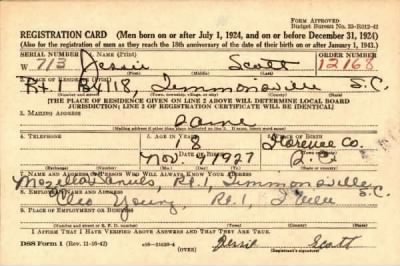 Form Approved
Budget Bureau No. 33-R012-42
REGISTRATION CARD (Men born on or after July 1, 1924, and on or before December 31, 1924)
(Also for the registration of men as they reach the 18th anniversary of the date of their birth on or after January 1, 1943.)
SERIAL NUMBER 1. NAME ORDER NUMBER
W 713 Jessie Scott 12168
2. PLACE OF RESIDENCE
Rt. 1, Timmonsville, S.C.
[THE PLACE OF RESIDENCE GIVEN ON LINE 2 ABOVE WILL DETERMINE LOCAL BOARD
JURISDICTION; LINE 2 OF REGISTRATION CERTIFICATE WILL BE IDENTICAL]
3. MAILING ADDRESS
Same
[Mailing address if other than place indicated on line 2. If same, insert word same]
4. TELEPHONE 5. AGE IN YEARS 6. PLACE OF BIRTH
18 Florence Co.
DATE OF BIRTH
Nov. 1927 S.C.
7. NAME AND ADDRESS OF PERSON WHO WILL ALWAYS KNOW YOUR ADDRESS
Mozella Daniels, Rt. 1, Timmonsville, S.C.
8. EMPLOYER'S NAME AND ADDRESS
Cleo Young, Rt. 1,
9. PLACE OF EMPLOYMENT OR BUSINESS
I AFFIRM THAT I HAVE VERIFIED ABOVE ANSWERS AND THAT THEY ARE TRUE.
DSS Form 1 (Rev. 11-16-42) (OVER) Jessie Scott